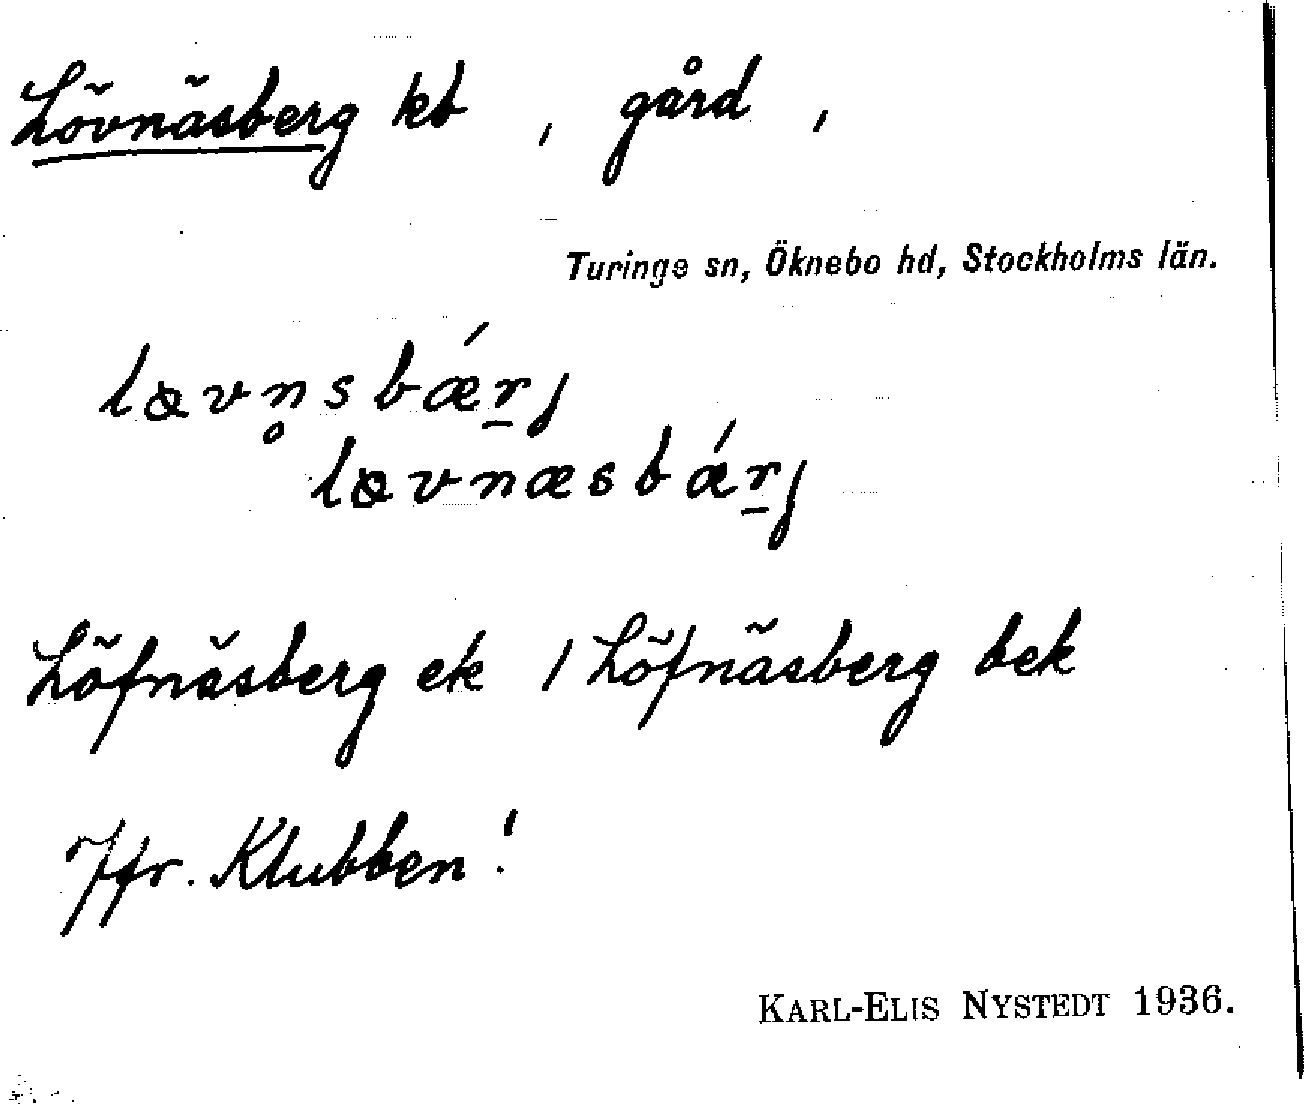 Lövnäsberg kb , gård ,
Turinge sn, Öknebo hd, Stockholms län.
lɷvn̥sbǽr̠j
lɷvnæsbǽr̠j
Löfnäsberg ek / Löfnäsberg bek
Jfr. Klubben!
KARL-ELIS NYSTEDT 1936.